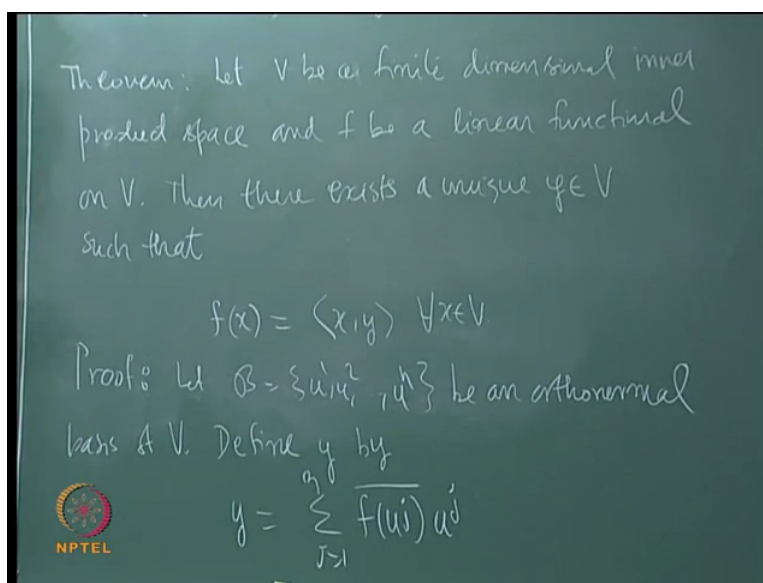 Theorem: Let V be a finite dimensional inner
product space and f be a linear functional
on V. Then there exists a unique y ∈ V
such that
f(x) = ⟨x, y⟩ ∀x∈V
Proof: Let B = {u¹, u², , uⁿ} be an orthonormal
basis of V. Define y by
y = \sum_{j=1}^{n} \overline{f(u^j)} u^j
NPTEL